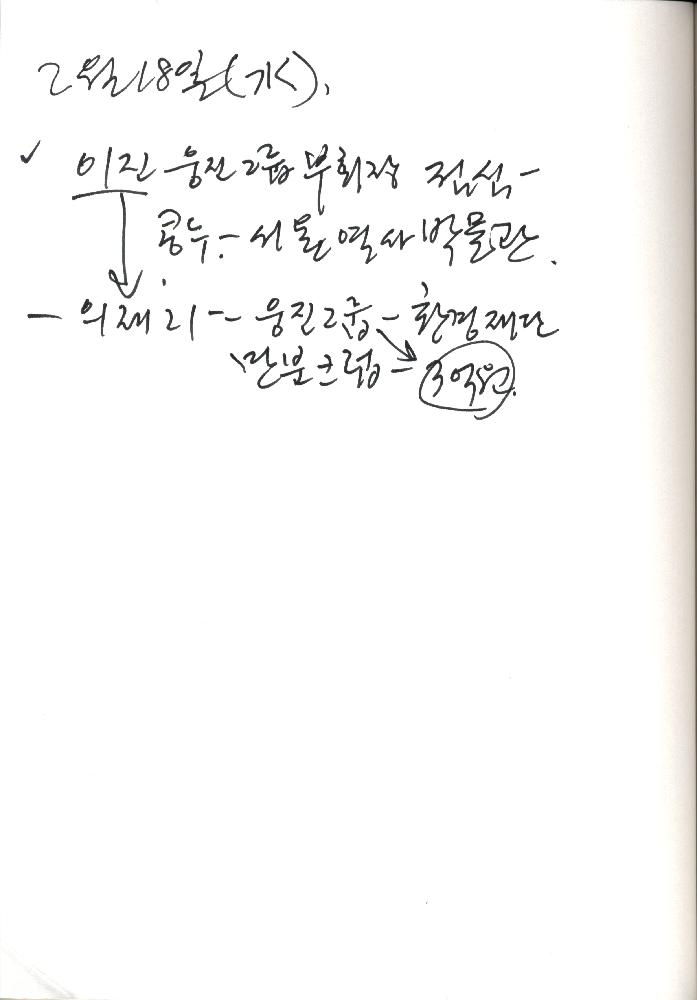 2월 18일(水).
✓ 이진 웅진그룹 부회장 점심-
콩두.- 서울역사박물관.
- 의제리-- 웅진그룹 - 환경재단
만분크럽 - 3억원.